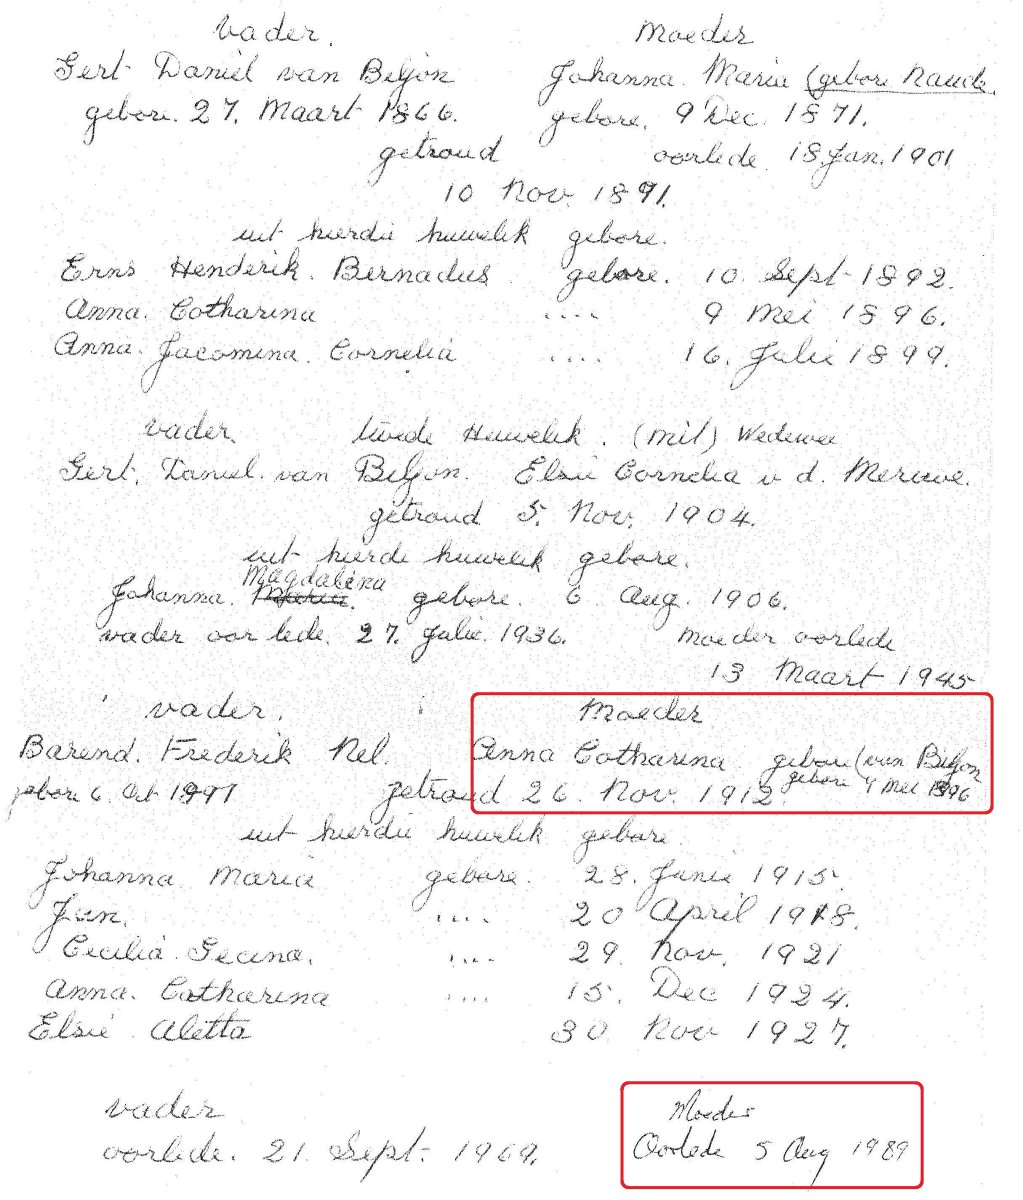 vader. Moeder
Gert Daniel van Biljon Johanna Maria (gebore Naude.
gebore. 27. Maart 1866. gebore. 9 Dec. 1871.
getroud oorlede 18 Jan. 1901
10 Nov. 1891.
uit hierdie huwelik gebore.
Erns Henderik. Bernadus gebore. 10 Sept 1892.
Anna. Catharina .... 9 Mei 1896.
Anna. Jacomina. Cornelia .... 16. Julie 1899.
vader. twede Huwelik. (mit) Wedewee
Gert. Daniel. van Biljon. Elsie Cornelia v d. Merwe.
getroud 5. Nov. 1904.
uit hierdi huwelik gebore.
Magdalena
Johanna. Maria. gebore. 6 Aug. 1906.
vader oorlede. 27. Julie. 1936. Moeder oorlede
13 Maart 1945
vader. Moeder
Barend. Frederik Nel. Anna Catharina gebore (van Biljon
gebore 9 Mei 1896
gebore 6. Oct getroud 26. Nov. 1912.
uit hierdie huwelik gebore.
Johanna Maria gebore. 28. Junie 1915.
Jan. .... 20 April 1918.
Cecilia Gecina. .... 29 Nov. 1921
Anna. Catharina .... 15. Dec 1924.
Elsie Aletta 30 Nov 1927.
vader Moeder
oorlede. 21. Sept. 1969. Oorlede 5 Aug 1989